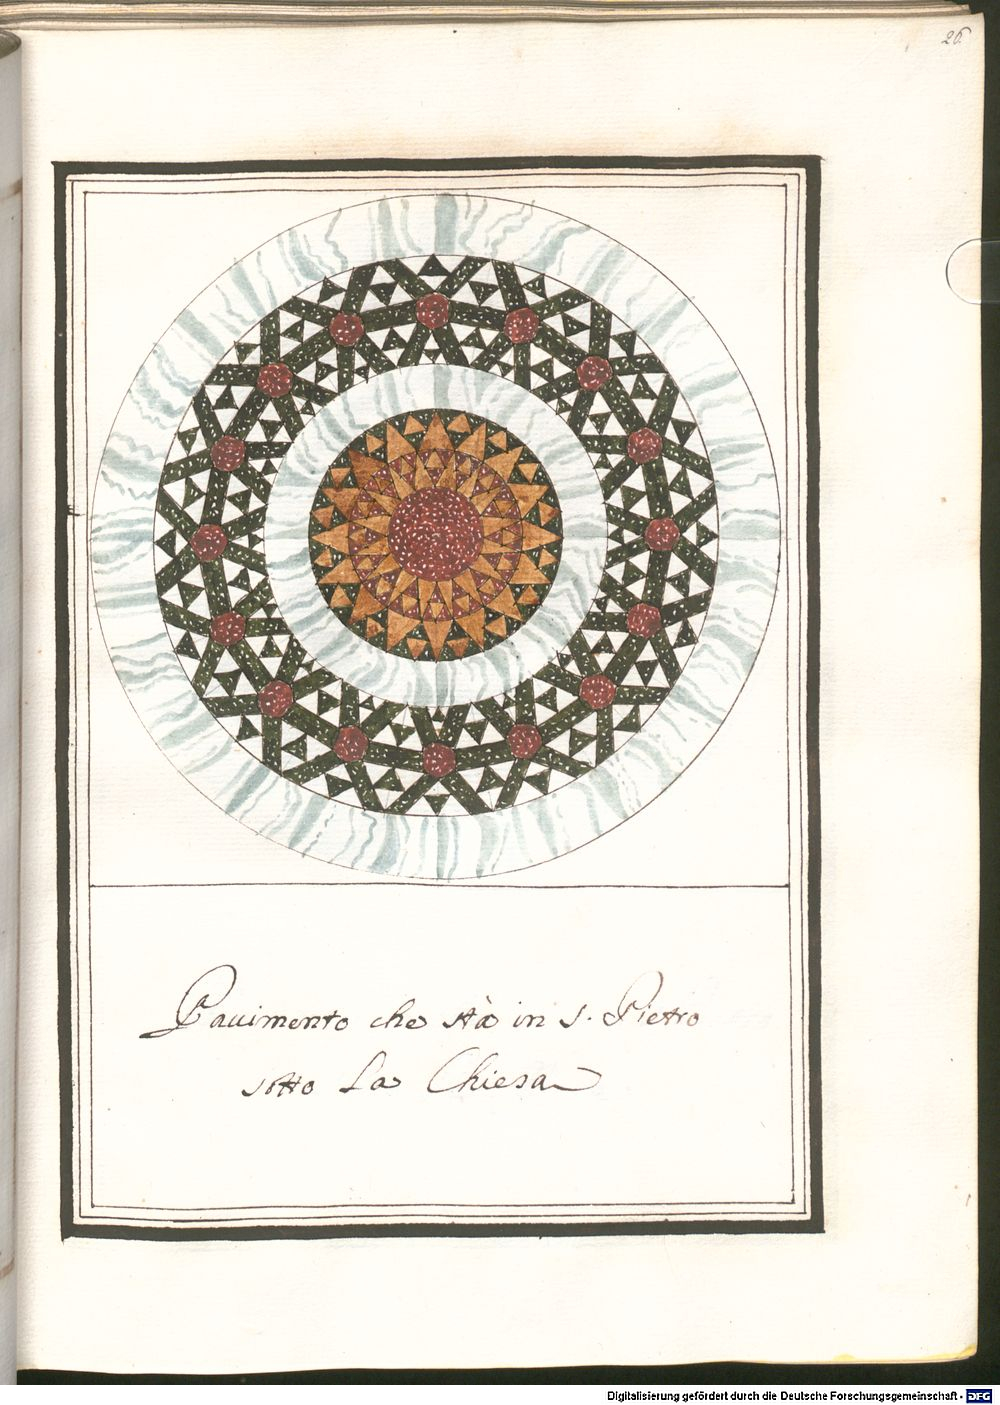 26.
Pauimento che stà in S. Pietro
sotto La Chiesa
Digitalisierung gefördert durch die Deutsche Forschungsgemeinschaft - DFG